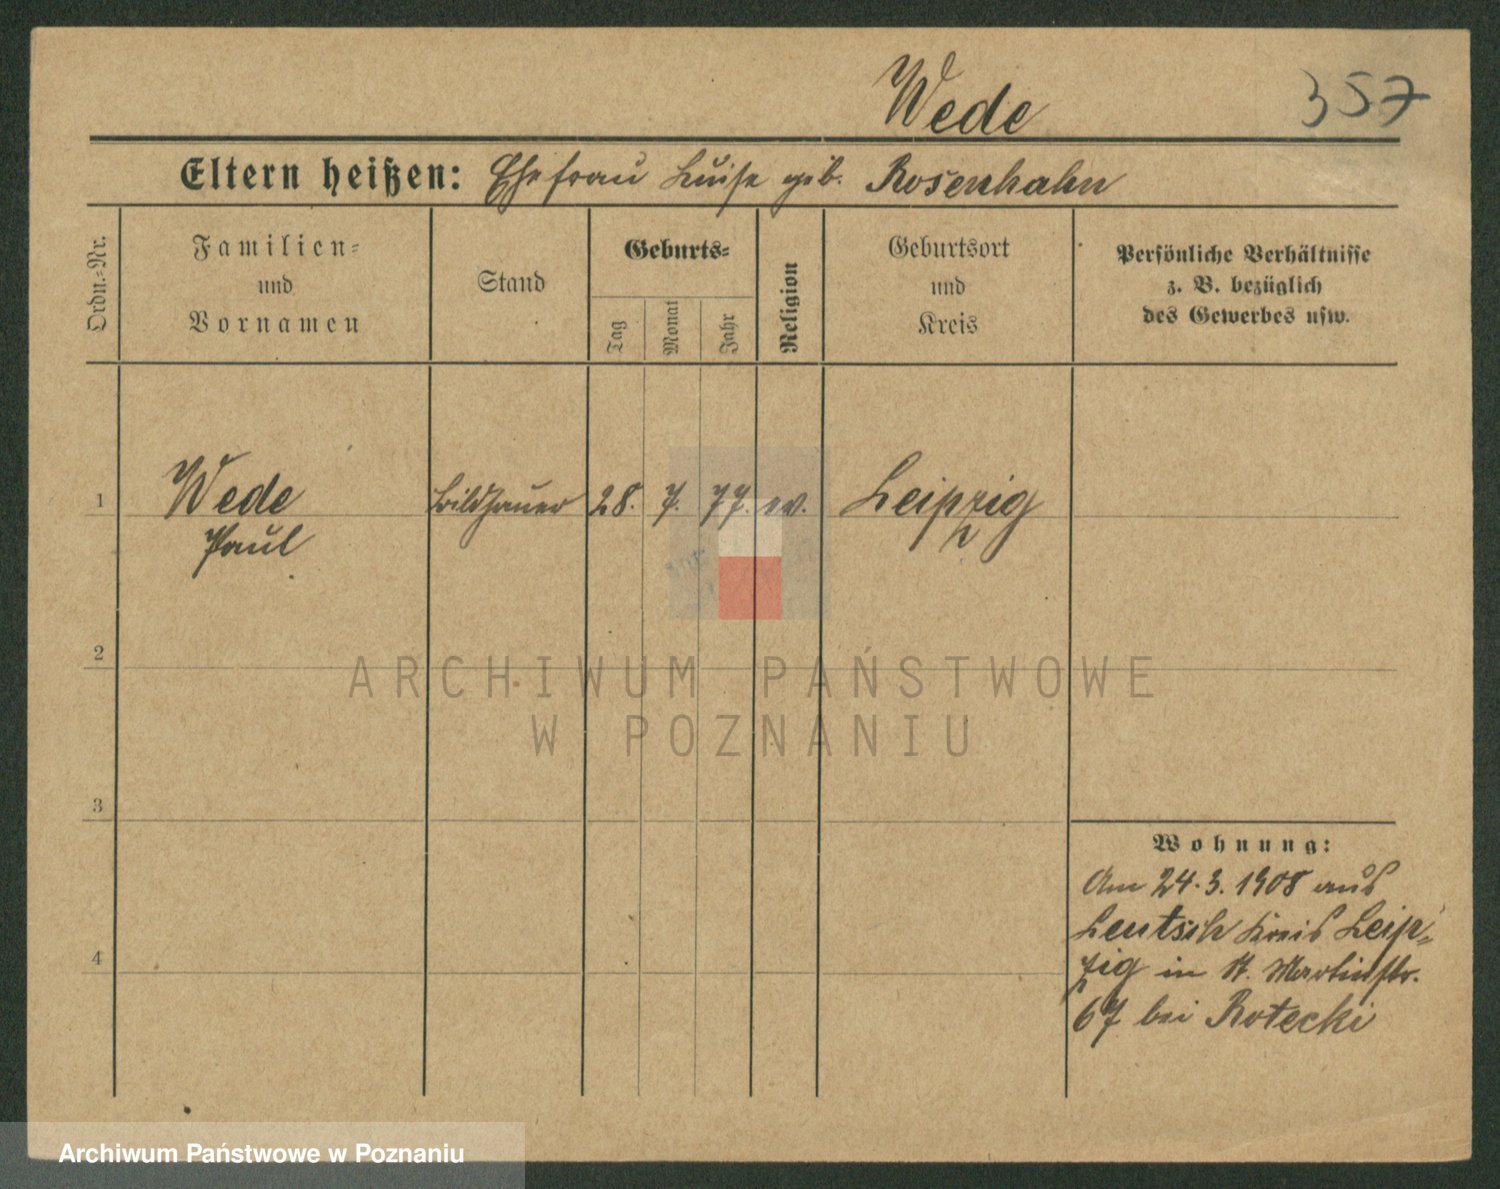 Wede
357
Eltern heißen: Ehefrau Luise geb. Rosenhahn
Ordn.-Nr.
Familien-
und
Vornamen
Stand
Geburts-
Tag
Monat
Jahr
Religion
Geburtsort
und
Kreis
Persönliche Verhältnisse
z. B. bezüglich
des Gewerbes usw.
1
Wede
Paul
Bildhauer
28.
7.
77.
ev.
Leipzig
2
ARCHIWUM PAŃSTWOWE
W POZNANIU
3
4
Wohnung:
Am 24.3.1908 aus
Leutsch Kreis Leip-
zig in St. Martinstr.
67 bei Rotecki
Archiwum Państwowe w Poznaniu